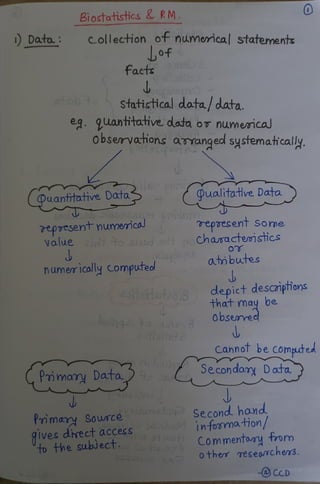 ①
Biostatistics & R.M.
1) Data : Collection of numerical statements
of
facts
Statistical data/data.
e.g. quantitative data or numerical
observations arranged systematically.
Quantitative Data
Qualitative Data
represent numerical
value
numerically computed
represent some
characteristics
or
atributes
depict descriptions
that may be
observed
Cannot be computed
Primary Data
Secondary Data
Primary Source
gives direct access
to the subject.
Second hand
information/
Commentary from
other researchers.
CCD